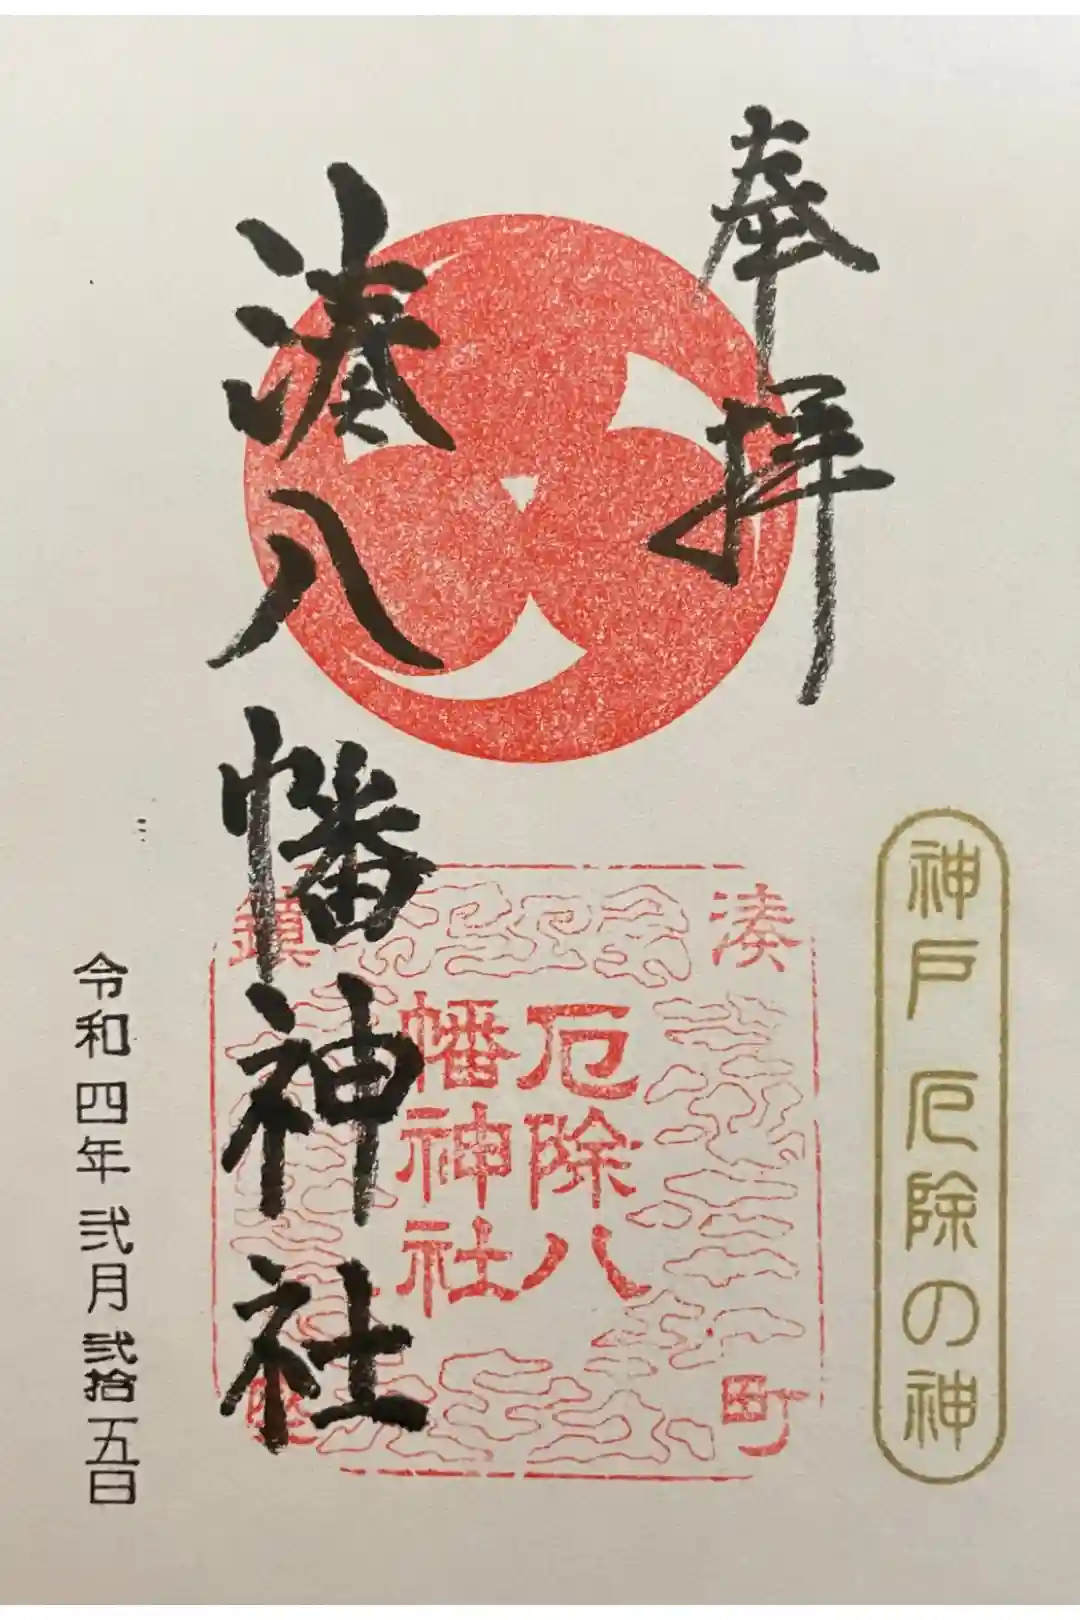 奉拝
神戸厄除の神
湊八幡神社
湊町鎮座
厄除八
幡神社
令和四年弐月弐拾五日